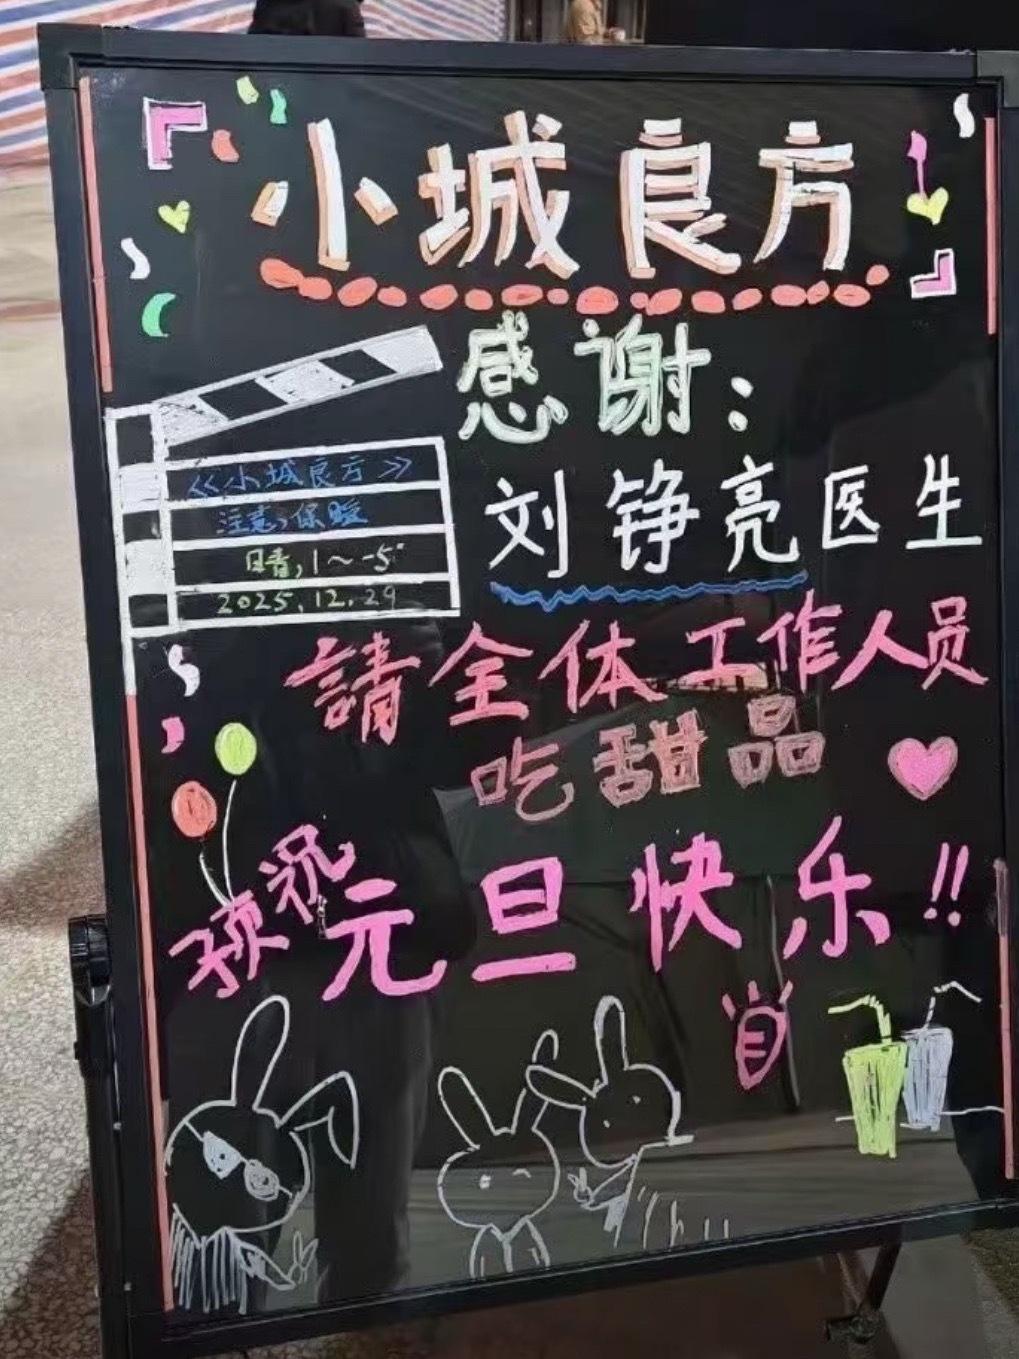 小城良方
感谢:
《小城良方》
注意,保暖
刘铮亮医生
日青,1～-5°
2025.12.29
請全体工作人员
吃甜品
预祝
元旦快乐!!